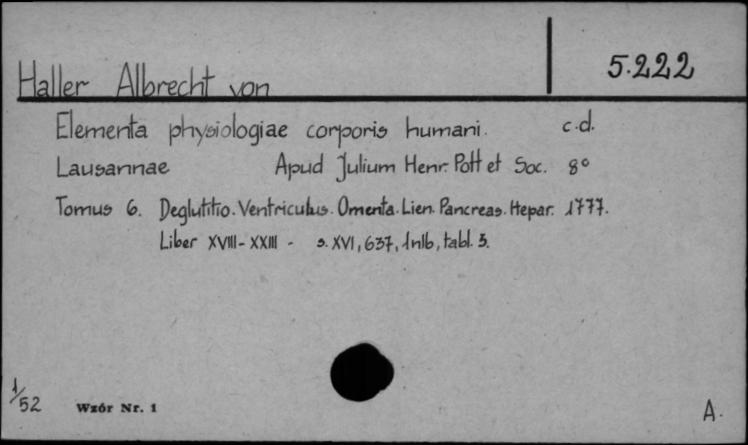 Haller Albrecht von
5.222
Elementa physiologiae corporis humani. c.d.
Lausannae Apud Julium Henr. Pott et Soc. 8°
Tomus 6. Deglutitio. Ventriculus. Omenta. Lien. Pancreas. Hepar. 1777.
Liber XVIII-XXIII - s. XVI, 637, 1nlb, tabl. 3.
1/52 Wzór Nr. 1
A.